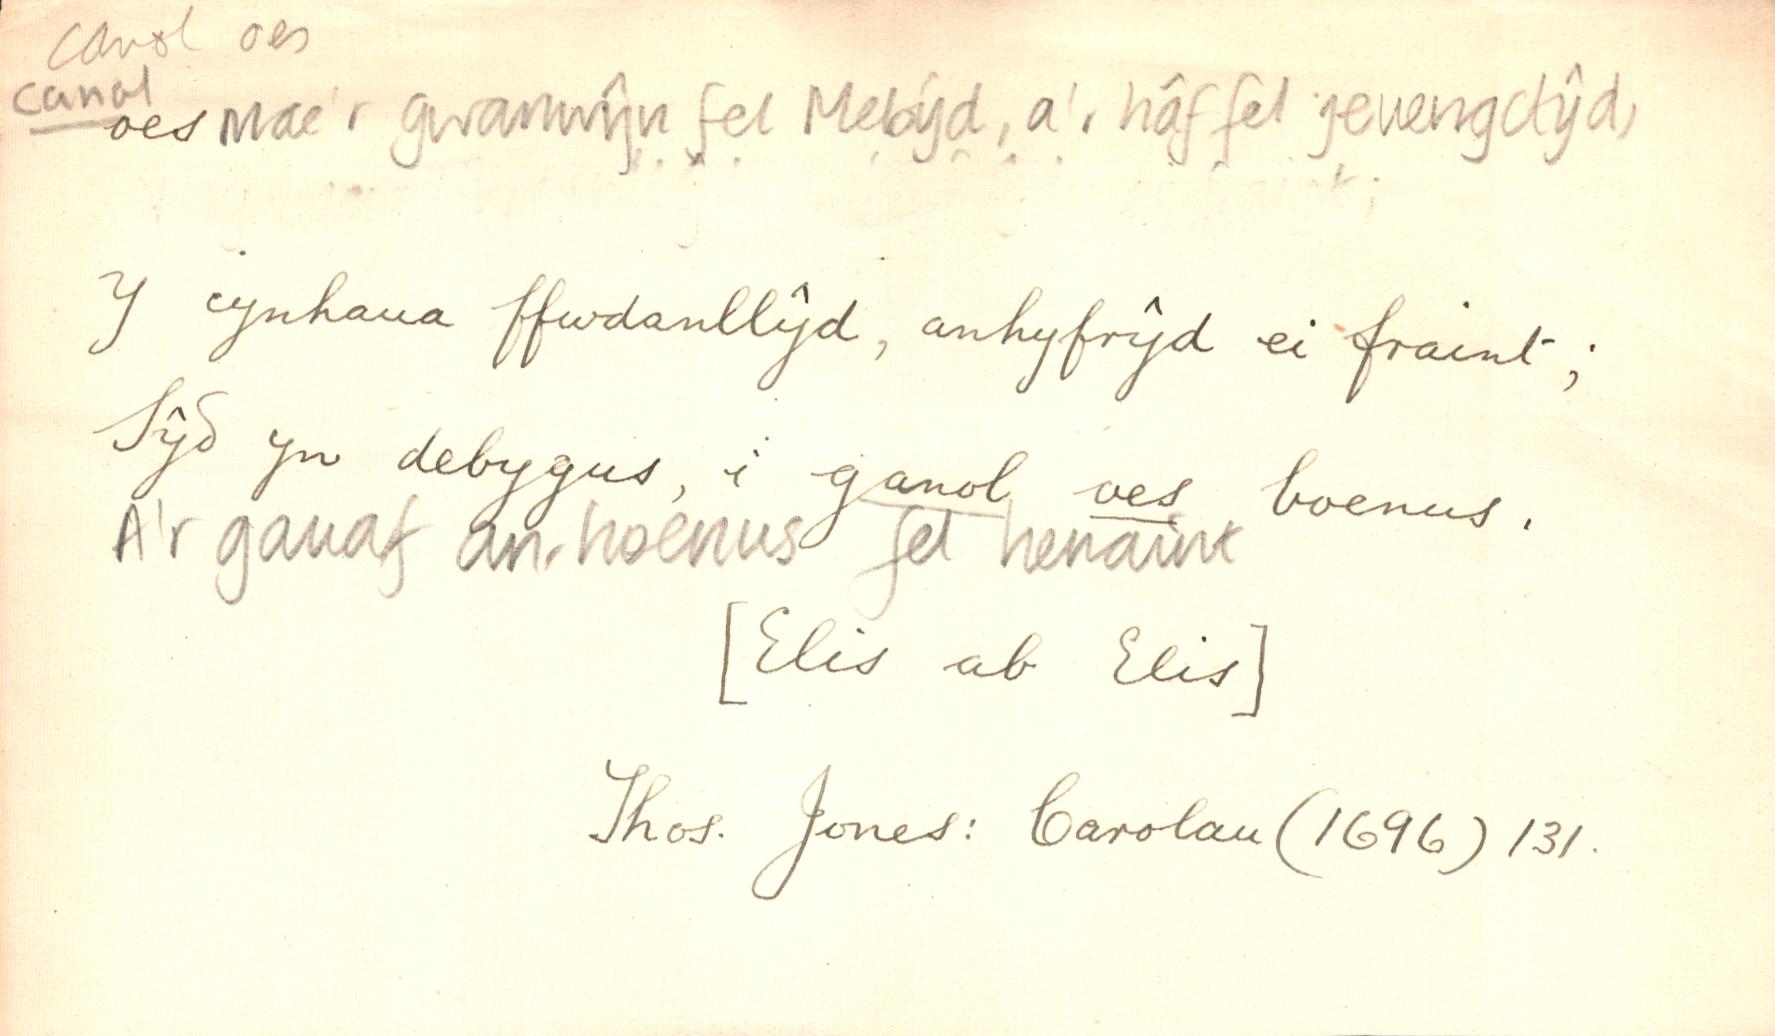 canol oes
canol
oes Mae'r gwanwŷn fel Mebŷd, a'r hâf fel jeuengctŷd,
Y cynhaua ffwdanllŷd, anhyfrŷd ei fraint;
Sŷδ yn debygus, i ganol oes boenus.
A'r gauaf an-hoenus fel henaint
[Elis ab Elis]
Thos. Jones: Carolau (1696) 131.